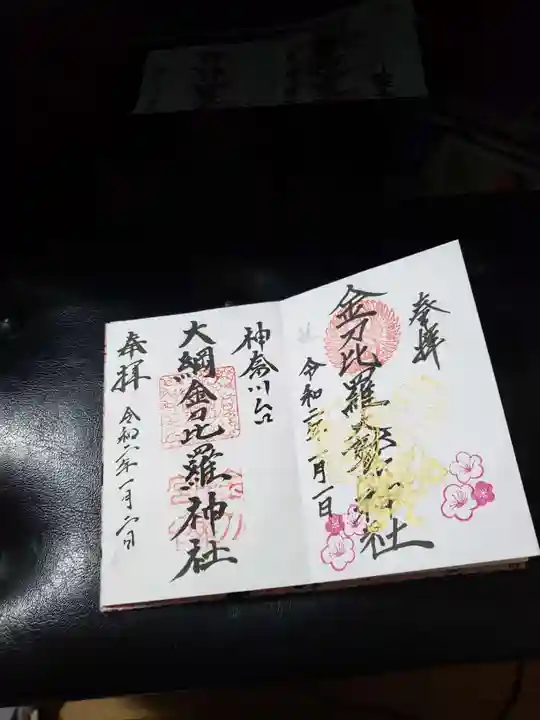 奉拝
金刀比羅大鷲神社
令和二年一月一日
神奈川台
大綱金刀比羅神社
奉拝
令和二年一月二日